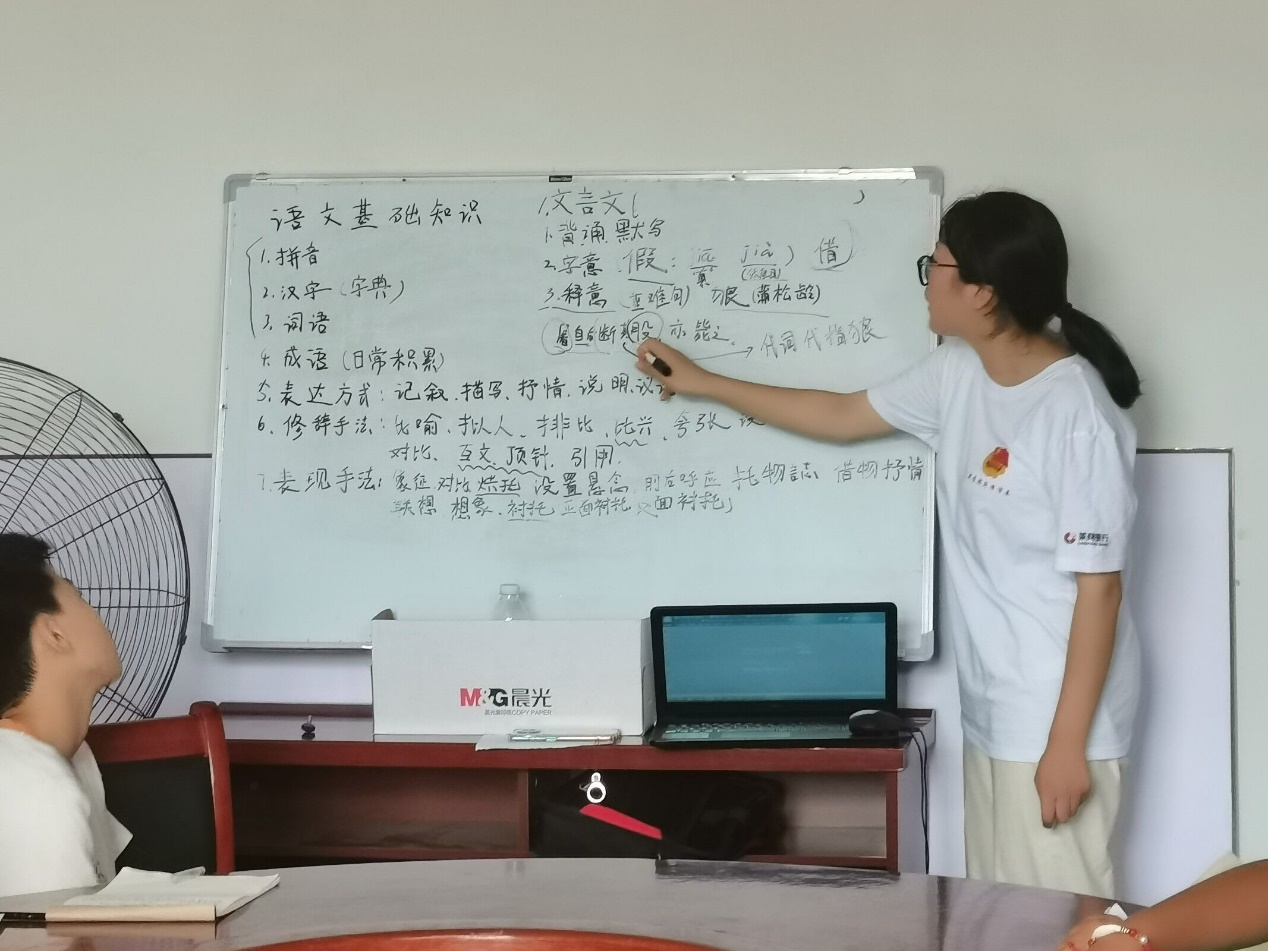 语文基础知识
1.拼音
2.汉字(字典)
3.词语
4.成语(日常积累)
5.表达方式:记叙.描写.抒情.说明.议
6.修辞手法:比喻、拟人、排比、比兴、夸张
对比、互文、顶针、引用.
7.表现手法:象征 对比 烘托 设置悬念、前后呼应 托物言志 借物抒情
联想 想象、衬托 正面衬托 反面衬托
1.文言文(
1.背诵 默写
2.字意 假: jiǎ jià ) 借
3.释意(重难句) 狼(蒲松龄)
自断其股 亦毙之. 代词 代指狼
M&G晨光
COPY PAPER